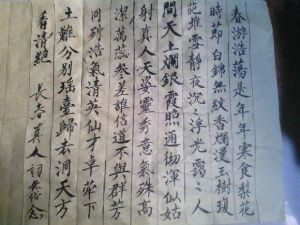 春游浩荡是年年寒食梨花
時節白錦無紋香爛漫玉樹瓊
葩堆雪靜夜沉沉浮光靄靄人
間天上爛銀霞照通徹渾似姑
射真人天姿靈秀意氣殊高
潔萬蕊参差誰信道不與群芳
同列浩氣清英仙才卓犖下
土難分别瑶臺歸去洞天方
看清絶 長春真人詞